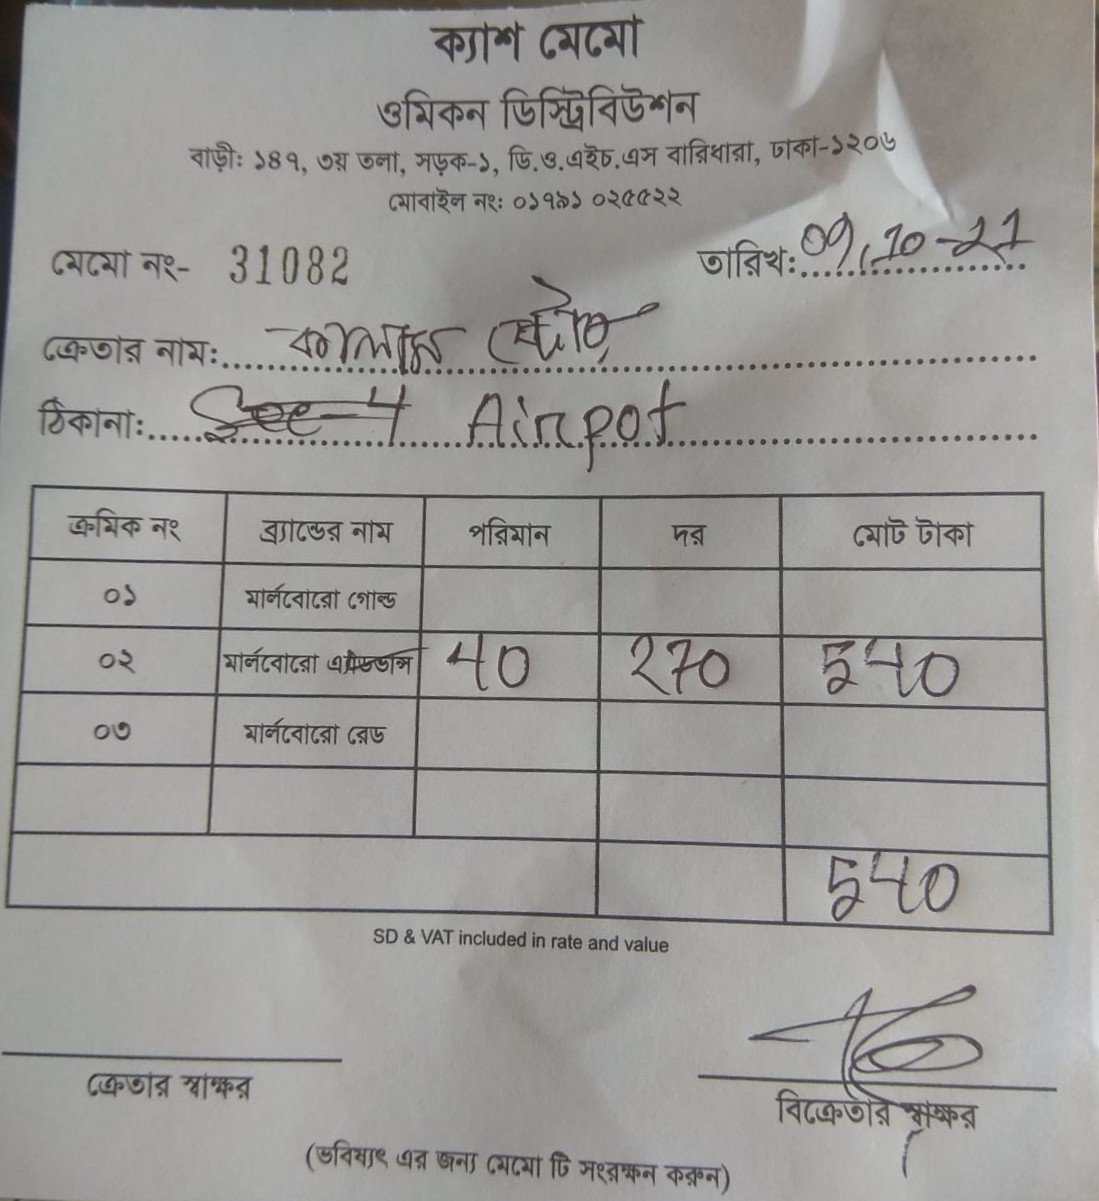 ক্যাশ মেমো
ওমিকন ডিস্ট্রিবিউশন
বাড়ী: ১৪৭, ৩য় তলা, সড়ক-১, ডি.ও.এইচ.এস বারিধারা, ঢাকা-১২০৬
মোবাইল নং: ০১৭৯১ ০২৫৫২২
মেমো নং- 31082 তারিখ: 09,10-21
ক্রেতার নাম: কালাম ষ্টোর
ঠিকানা: Airpot
ক্রমিক নং ব্র্যান্ডের নাম পরিমান দর মোট টাকা
০১ মার্লবোরো গোল্ড
০২ মার্লবোরো এ্যাডভান্স 40 270 540
০৩ মার্লবোরো রেড
540
SD & VAT included in rate and value
ক্রেতার স্বাক্ষর বিক্রেতার স্বাক্ষর
(ভবিষ্যৎ এর জন্য মেমো টি সংরক্ষন করুন)